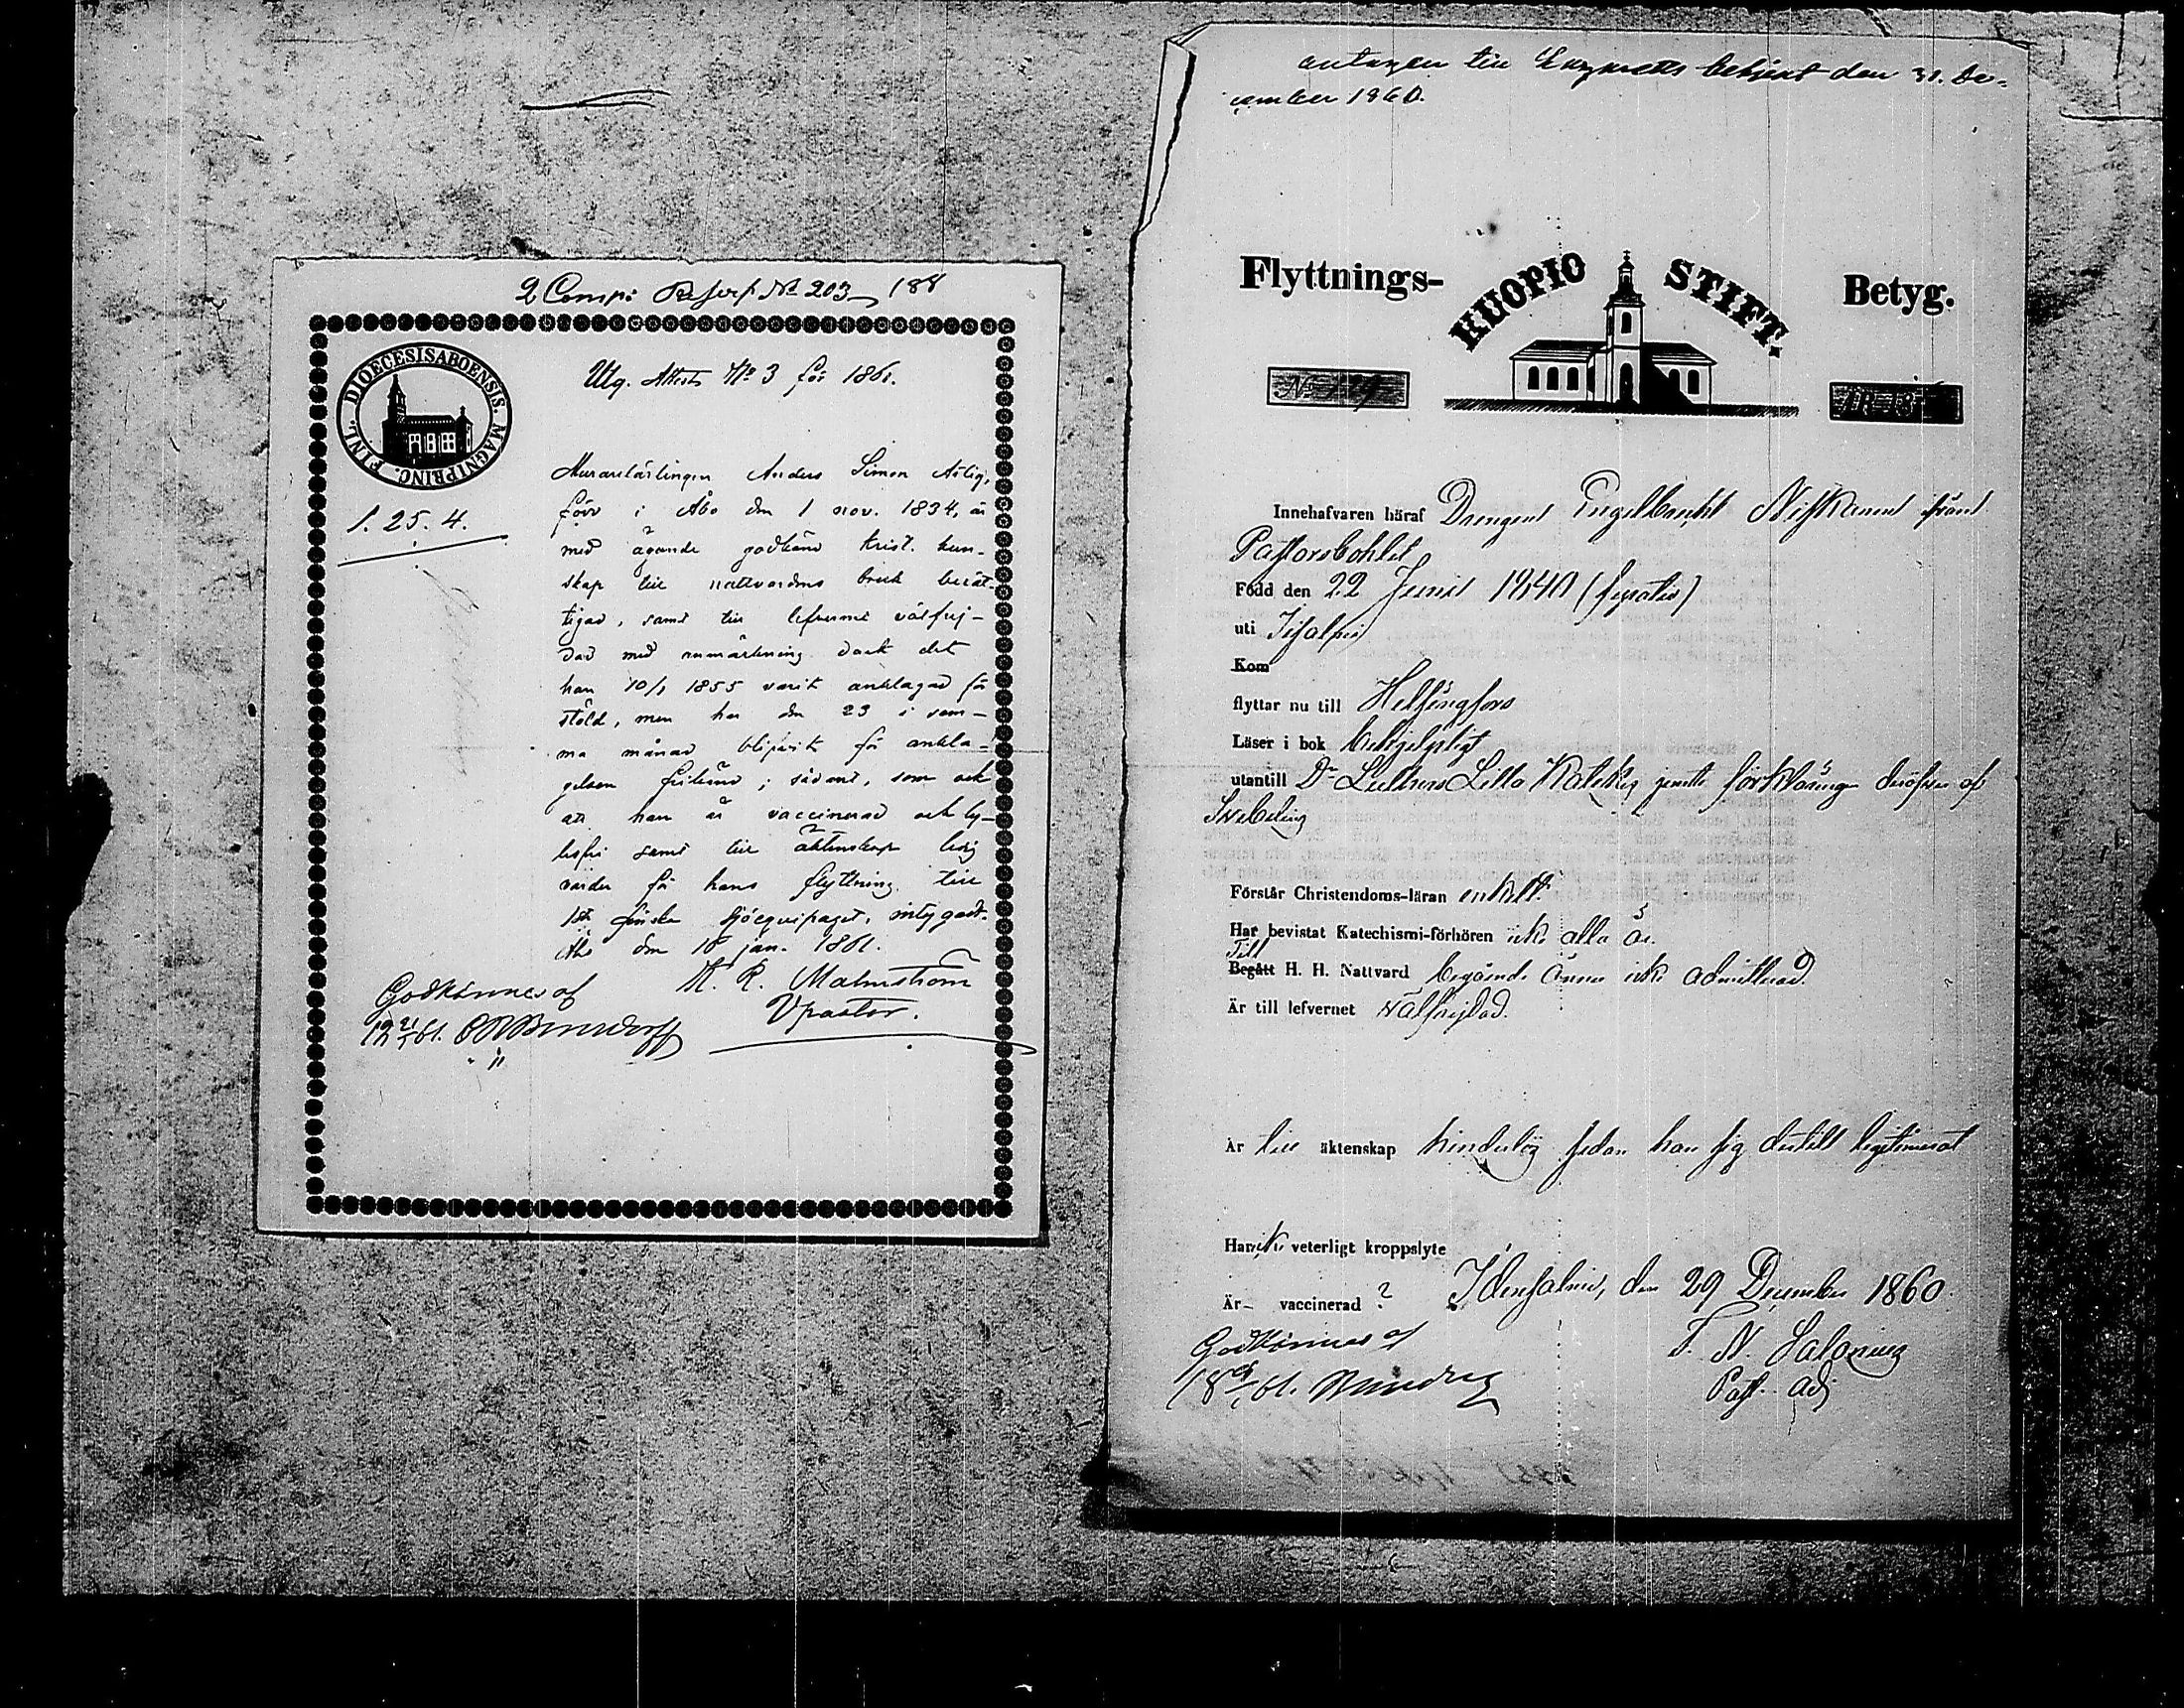 2 Comp: Reserf No 203 188
DIOECESIS ABOENSIS. MAGNI PRINC. FINL.
Utg. Attest No 3 för 1861.
s. 25. 4.
Murarelärlingen Anders Simon
född i Åbo den 1 nov. 1834, är
med ägande godkänd krist. kun-
skap till nattvardens bruk berät-
tigad, samt till lefvernet välfrej-
dad med anmärkning dock det
han 10/1 1855 varit anklagad för
stöld, men har den 23 i sam-
ma månad blifvit för ankla-
gelsen frikänd; sådant, som ock
att han är vaccinerad och ly-
tesfri samt till äktenskap ledig
varder för hans flyttning till
1sta finska sjöequipaget, intygadt.
Åbo den 18 jan. 1861.
K. R. Malmström
V pastor.
Godkännes af
18 21/1 61.
antagen till Lazaretts betjent den 31. De-
cember 1860.
Flyttnings- KUOPIO STIFT. Betyg.
No
Innehafvaren häraf Drengen Engelbrecht Niskanen ifrån
Pastorsbohlet
Född den 22 Junii 1840 (fyratio)
uti Iisalmi
Kom
flyttar nu till Helsingfors
Läser i bok behjelpligt
utantill Dr Luthers Lilla Kateches jemte förklaring deröfver af
Swebelius
Förstår Christendoms-läran enkelt.
Har bevistat Katechismi-förhören icke alla år.
Till
Begått H. H. Nattvard begående ännu icke admitterad.
Är till lefvernet wälfrejdad.
Är till äktenskap hinderlös sedan han sig dertill legitimerat
Har icke veterligt kroppslyte
Är vaccinerad ? Idensalmi, den 29 December 1860.
Godkännes af
F. N. Salonius
Past. Adj